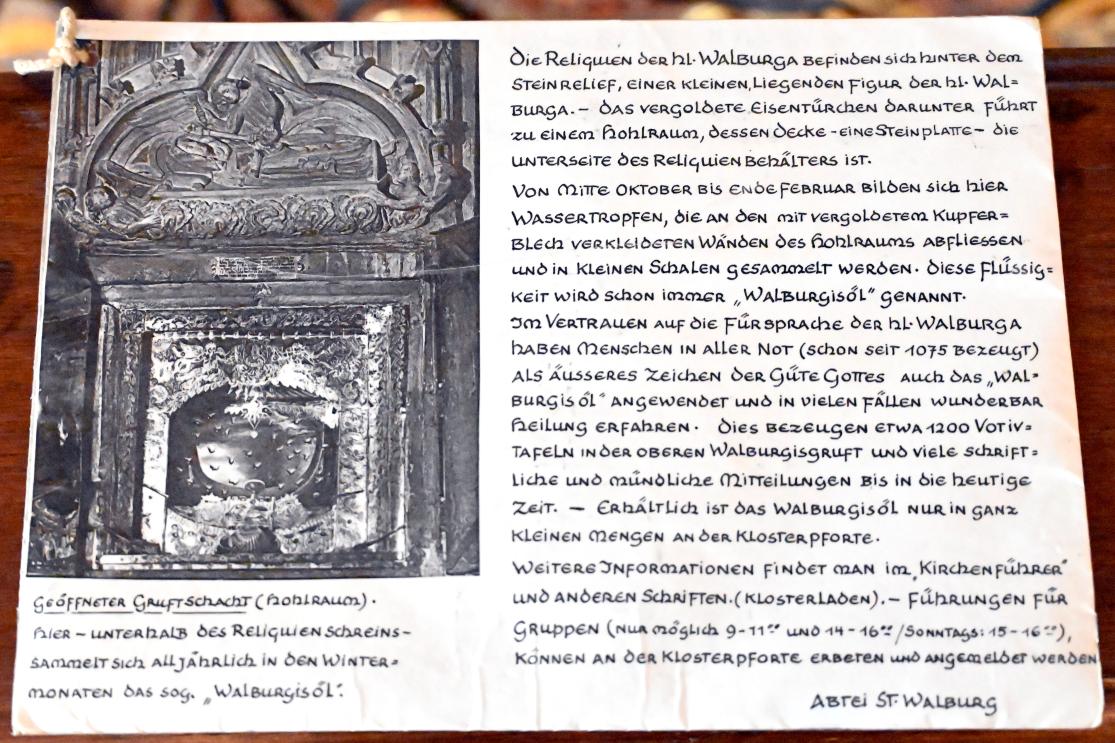 Die Reliquien der hl. Walburga befinden sich hinter dem
Steinrelief, einer kleinen, liegenden Figur der hl. Wal=
burga. – Das vergoldete Eisentürchen darunter führt
zu einem Hohlraum, dessen Decke - eine Steinplatte – die
Unterseite des Reliquienbehälters ist.
Von Mitte Oktober bis Ende Februar bilden sich hier
Wassertropfen, die an den mit vergoldetem Kupfer=
blech verkleideten Wänden des Hohlraums abfliessen
und in kleinen Schalen gesammelt werden. Diese Flüssig=
keit wird schon immer „Walburgisöl" genannt.
Im Vertrauen auf die Fürsprache der hl. Walburga
haben Menschen in aller Not (schon seit 1075 bezeugt)
als äusseres Zeichen der Güte Gottes auch das „Wal=
burgisöl" angewendet und in vielen Fällen wunderbar
Heilung erfahren. Dies bezeugen etwa 1200 Votiv=
tafeln in der oberen Walburgisgruft und viele schrift=
liche und mündliche Mitteilungen bis in die heutige
Zeit. – Erhältlich ist das Walburgisöl nur in ganz
kleinen Mengen an der Klosterpforte.
Weitere Informationen findet man im „Kirchenführer"
und anderen Schriften. (Klosterladen). – Führungen für
Gruppen (nur möglich 9-11⁰⁰ und 14-16⁰⁰/Sonntags: 15-16⁰⁰),
können an der Klosterpforte erbeten und angemeldet werden
Abtei St. Walburg
Geöffneter Gruftschacht (Hohlraum).
Hier – unterhalb des Reliquienschreins–
sammelt sich alljährlich in den Winter=
monaten das sog. „Walburgisöl".